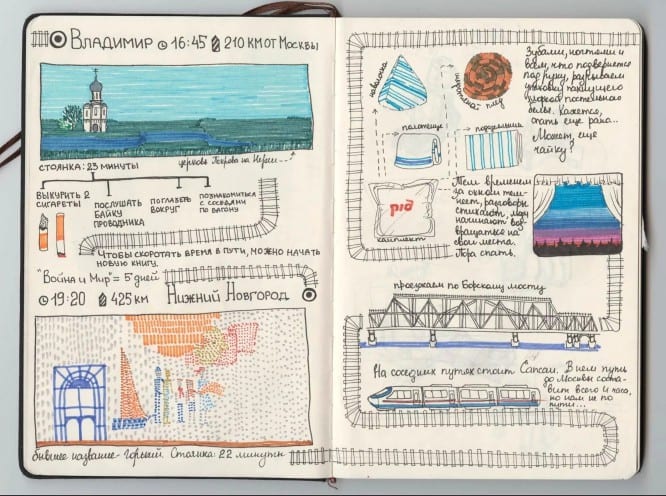 Владимир 16:45 210 км от Москвы
церковь Покрова на Нерли...↑
стоянка: 23 минуты
выкурить 2
сигареты
послушать
байку
проводника
поглазеть
вокруг
познакомиться
с соседями
по вагону
Чтобы скоротать время в пути, можно начать
новую книгу.
"Война и Мир" = 5 дней
19:20 425 км Нижний Новгород
бывшее название - Горький. Стоянка: 22 минуты
наволочка
шерстяной плед
полотенце
пододеяльник
ржд
комплект
Зубами, ногтями и
всем, что подвернётся
под руку, разрываем
упаковку пахнущего
хлоркой постельного
белья. Кажется,
спать еще рано...
Может, еще
чайку?
Тем временем
за окном тем-
неет, разговоры
стихают, люди
начинают воз-
вращаться на
свои места.
Пора спать.
проезжаем по Борскому мосту
На соседних путях стоит Сапсан. В нем пути
до Москвы соста-
вит всего 4 часа,
но нам не по
пути...